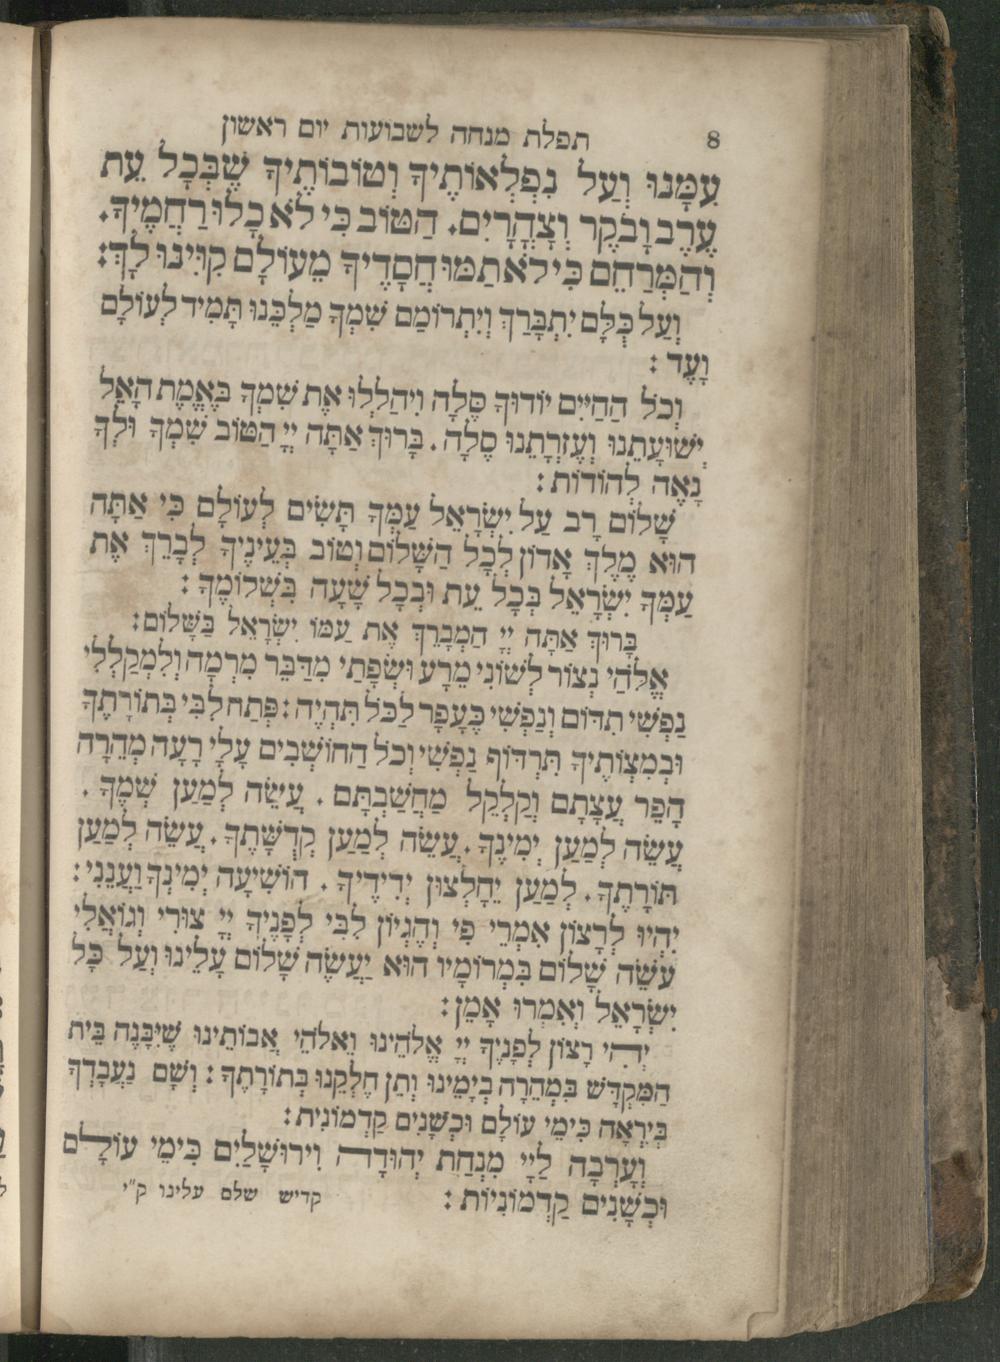 8 תפלת מנחה לשבועות יום ראשון
עִמָּנוּ וְעַל נִפְלְאוֹתֶיךָ וְטוֹבוֹתֶיךָ שֶׁבְּכָל עֵת
עֶרֶב וָבֹקֶר וְצָהֳרָיִם. הַטּוֹב כִּי לֹא כָלוּ רַחֲמֶיךָ.
וְהַמְּרַחֵם כִּי לֹא תַמּוּ חֲסָדֶיךָ מֵעוֹלָם קִוִּינוּ לָךְ:
וְעַל כֻּלָּם יִתְבָּרַךְ וְיִתְרוֹמַם שִׁמְךָ מַלְכֵּנוּ תָּמִיד לְעוֹלָם
וָעֶד:
וְכֹל הַחַיִּים יוֹדוּךָ סֶּלָה וִיהַלְלוּ אֶת שִׁמְךָ בֶּאֱמֶת הָאֵל
יְשׁוּעָתֵנוּ וְעֶזְרָתֵנוּ סֶלָה. בָּרוּךְ אַתָּה יְיָ הַטּוֹב שִׁמְךָ וּלְךָ
נָאֶה לְהוֹדוֹת:
שָׁלוֹם רָב עַל יִשְׂרָאֵל עַמְּךָ תָּשִׂים לְעוֹלָם כִּי אַתָּה
הוּא מֶלֶךְ אָדוֹן לְכָל הַשָּׁלוֹם וְטוֹב בְּעֵינֶיךָ לְבָרֵךְ אֶת
עַמְּךָ יִשְׂרָאֵל בְּכָל עֵת וּבְכָל שָׁעָה בִּשְׁלוֹמֶךָ:
בָּרוּךְ אַתָּה יְיָ הַמְבָרֵךְ אֶת עַמּוֹ יִשְׂרָאֵל בַּשָּׁלוֹם:
אֱלֹהַי נְצוֹר לְשׁוֹנִי מֵרָע וּשְׂפָתַי מִדַּבֵּר מִרְמָה וְלִמְקַלְלַי
נַפְשִׁי תִדּוֹם וְנַפְשִׁי כֶּעָפָר לַכֹּל תִּהְיֶה: פְּתַח לִבִּי בְּתוֹרָתֶךָ
וּבְמִצְוֹתֶיךָ תִּרְדּוֹף נַפְשִׁי וְכֹל הַחוֹשְׁבִים עָלַי רָעָה מְהֵרָה
הָפֵר עֲצָתָם וְקַלְקֵל מַחֲשַׁבְתָּם. עֲשֵׂה לְמַעַן שְׁמֶךָ.
עֲשֵׂה לְמַעַן יְמִינֶךָ. עֲשֵׂה לְמַעַן קְדֻשָּׁתֶךָ. עֲשֵׂה לְמַעַן
תּוֹרָתֶךָ. לְמַעַן יֵחָלְצוּן יְדִידֶיךָ. הוֹשִׁיעָה יְמִינְךָ וַעֲנֵנִי:
יִהְיוּ לְרָצוֹן אִמְרֵי פִי וְהֶגְיוֹן לִבִּי לְפָנֶיךָ יְיָ צוּרִי וְגוֹאֲלִי
עֹשֶׂה שָׁלוֹם בִּמְרוֹמָיו הוּא יַעֲשֶׂה שָׁלוֹם עָלֵינוּ וְעַל כָּל
יִשְׂרָאֵל וְאִמְרוּ אָמֵן:
יְהִי רָצוֹן לְפָנֶיךָ יְיָ אֱלֹהֵינוּ וֵאלֹהֵי אֲבוֹתֵינוּ שֶׁיִּבָּנֶה בֵּית
הַמִּקְדָּשׁ בִּמְהֵרָה בְיָמֵינוּ וְתֵן חֶלְקֵנוּ בְּתוֹרָתֶךָ: וְשָׁם נַעֲבָדְךָ
בְּיִרְאָה כִּימֵי עוֹלָם וּכְשָׁנִים קַדְמוֹנִית:
וְעָרְבָה לַיְיָ מִנְחַת יְהוּדָה וִירוּשָׁלַיִם כִּימֵי עוֹלָם
וּכְשָׁנִים קַדְמוֹנִיּוֹת: קדיש שלם עלינו ק״י